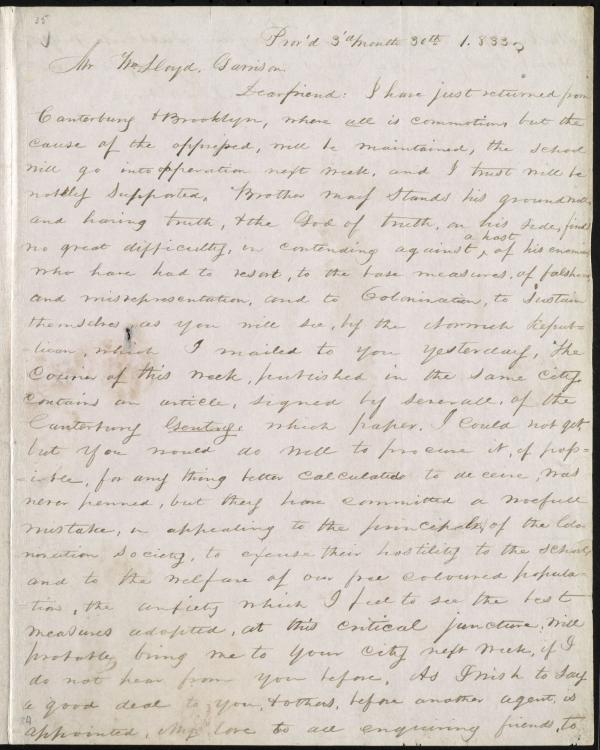 35
Prov'd 3'd Month 30th 1.833
Mr Wm Lloyd. Garrison
Dear friend: I have just returned from
Canterbury & Brooklyn, where all is commotion but the
cause of the oppressed, will be maintained, the school
will go into opperation next week, and I trust will be
nobly supported. Brother may stands his ground
and having truth, & the God of truth, on his side, finds
no great difficulty, in contending against a host, of his enemies
who have had to resort, to the base measures, of falshood
and misrepresentation, and to Colonization, to sustain
themselves as you will see, by the Norwich Repub-
-lican, which I mailed to you yesterday, The
Courier of this week, published in the same city
contains an article, signed by severall, of the
Canterbury Gentry. which paper. I could not get
but you would do well to procure it, if poss-
-ible, for any thing better calculated to deceive, was
never penned, but they have committed a woefull
mistake, in appealing to the principals, of the Colo
nization society, to excuse their hostility to the school
and to the welfare of our free coloured popula-
tion, the anxiety which I feel to see the best
measures adopted, at this critical juncture, will
probably bring me to your city next week, if I
do not hear from you before, As I wish to say
a good deal to you, & others, before another agent is
appointed, My love to all enquiring friends, to